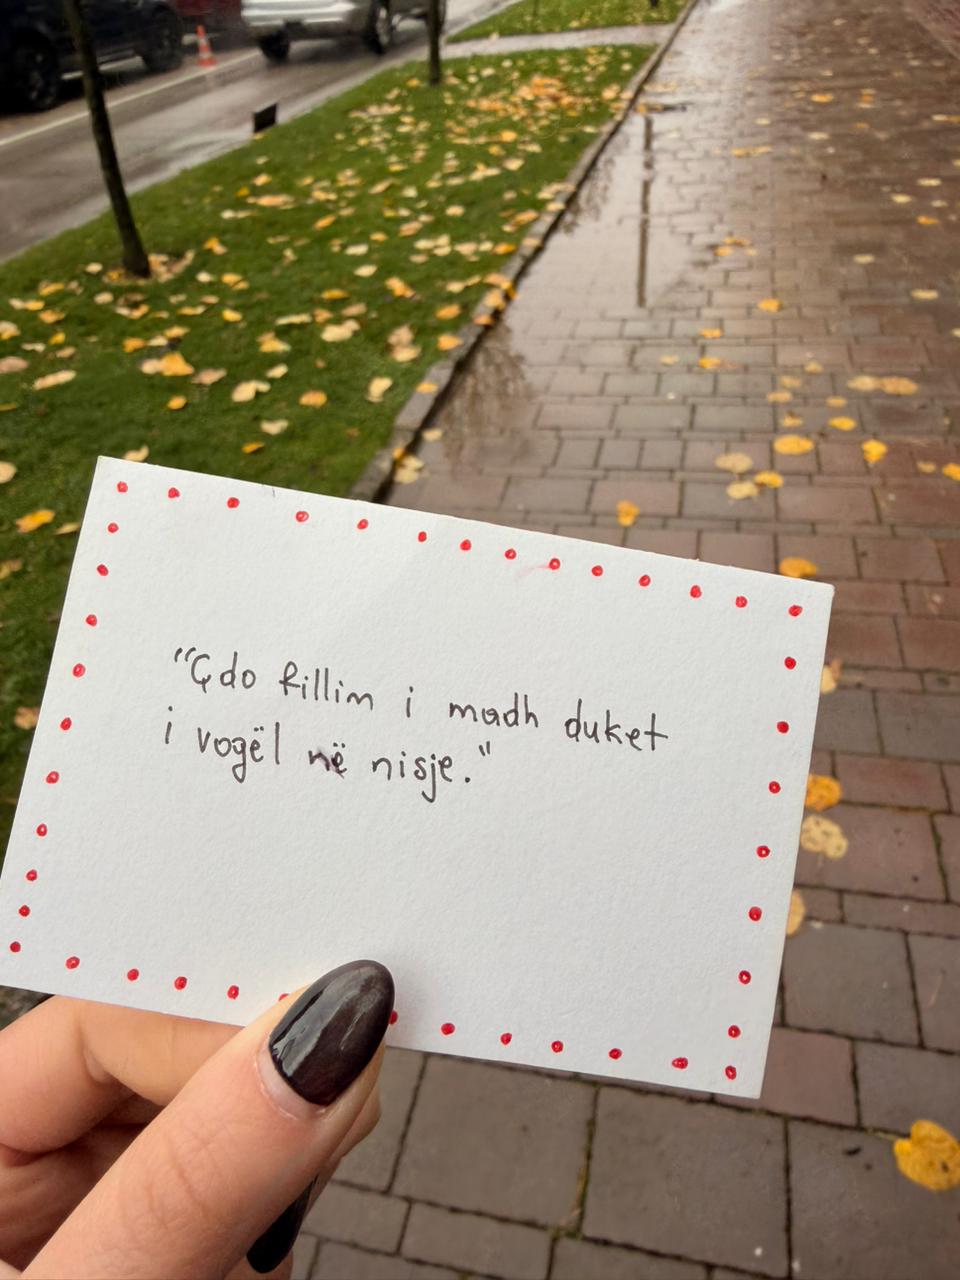 "Çdo fillim i madh duket
i vogël në nisje."